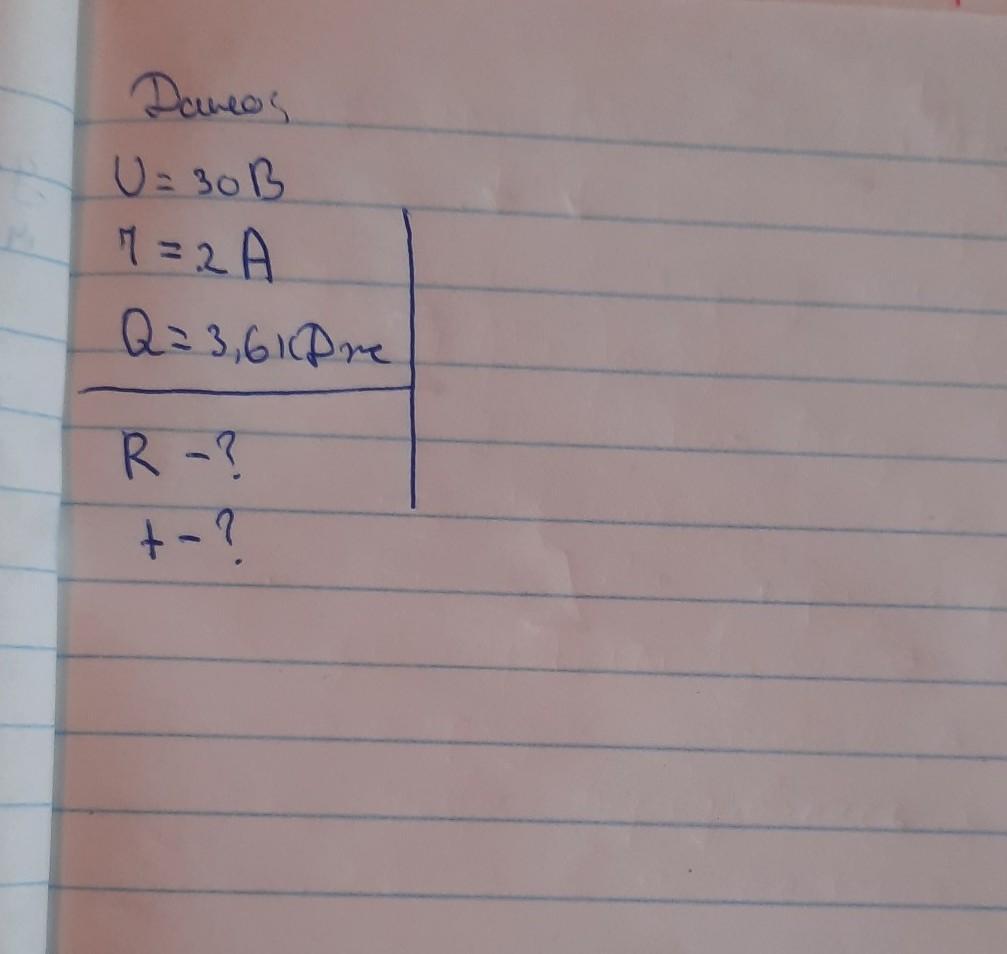 Дано:
U = 30 В
I = 2 А
Q = 3,6 кДж
R - ?
t - ?